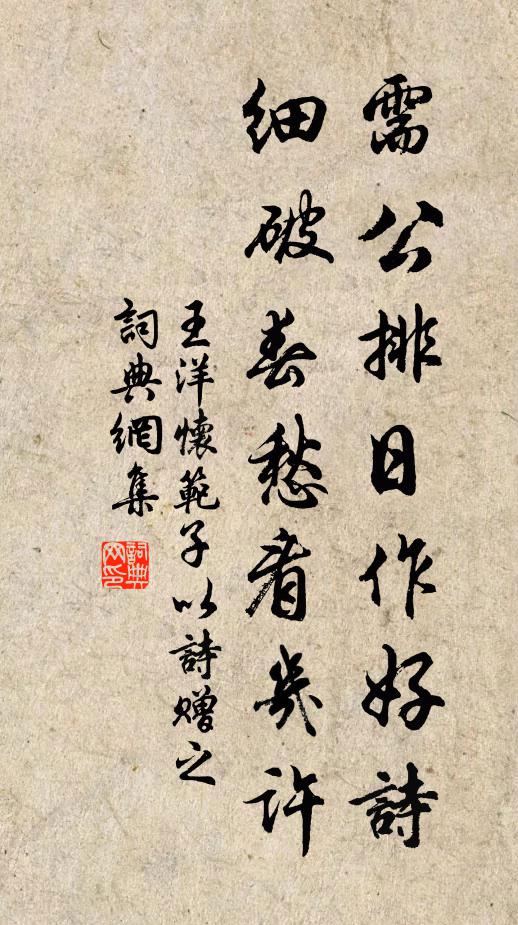 需公排日作好詩
細破春愁看幾許
王洋懷範子以詩贈之
詞典網集
詞典網印